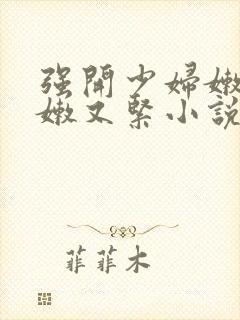 强開少婦嫩
嫩又緊小說
菲菲木